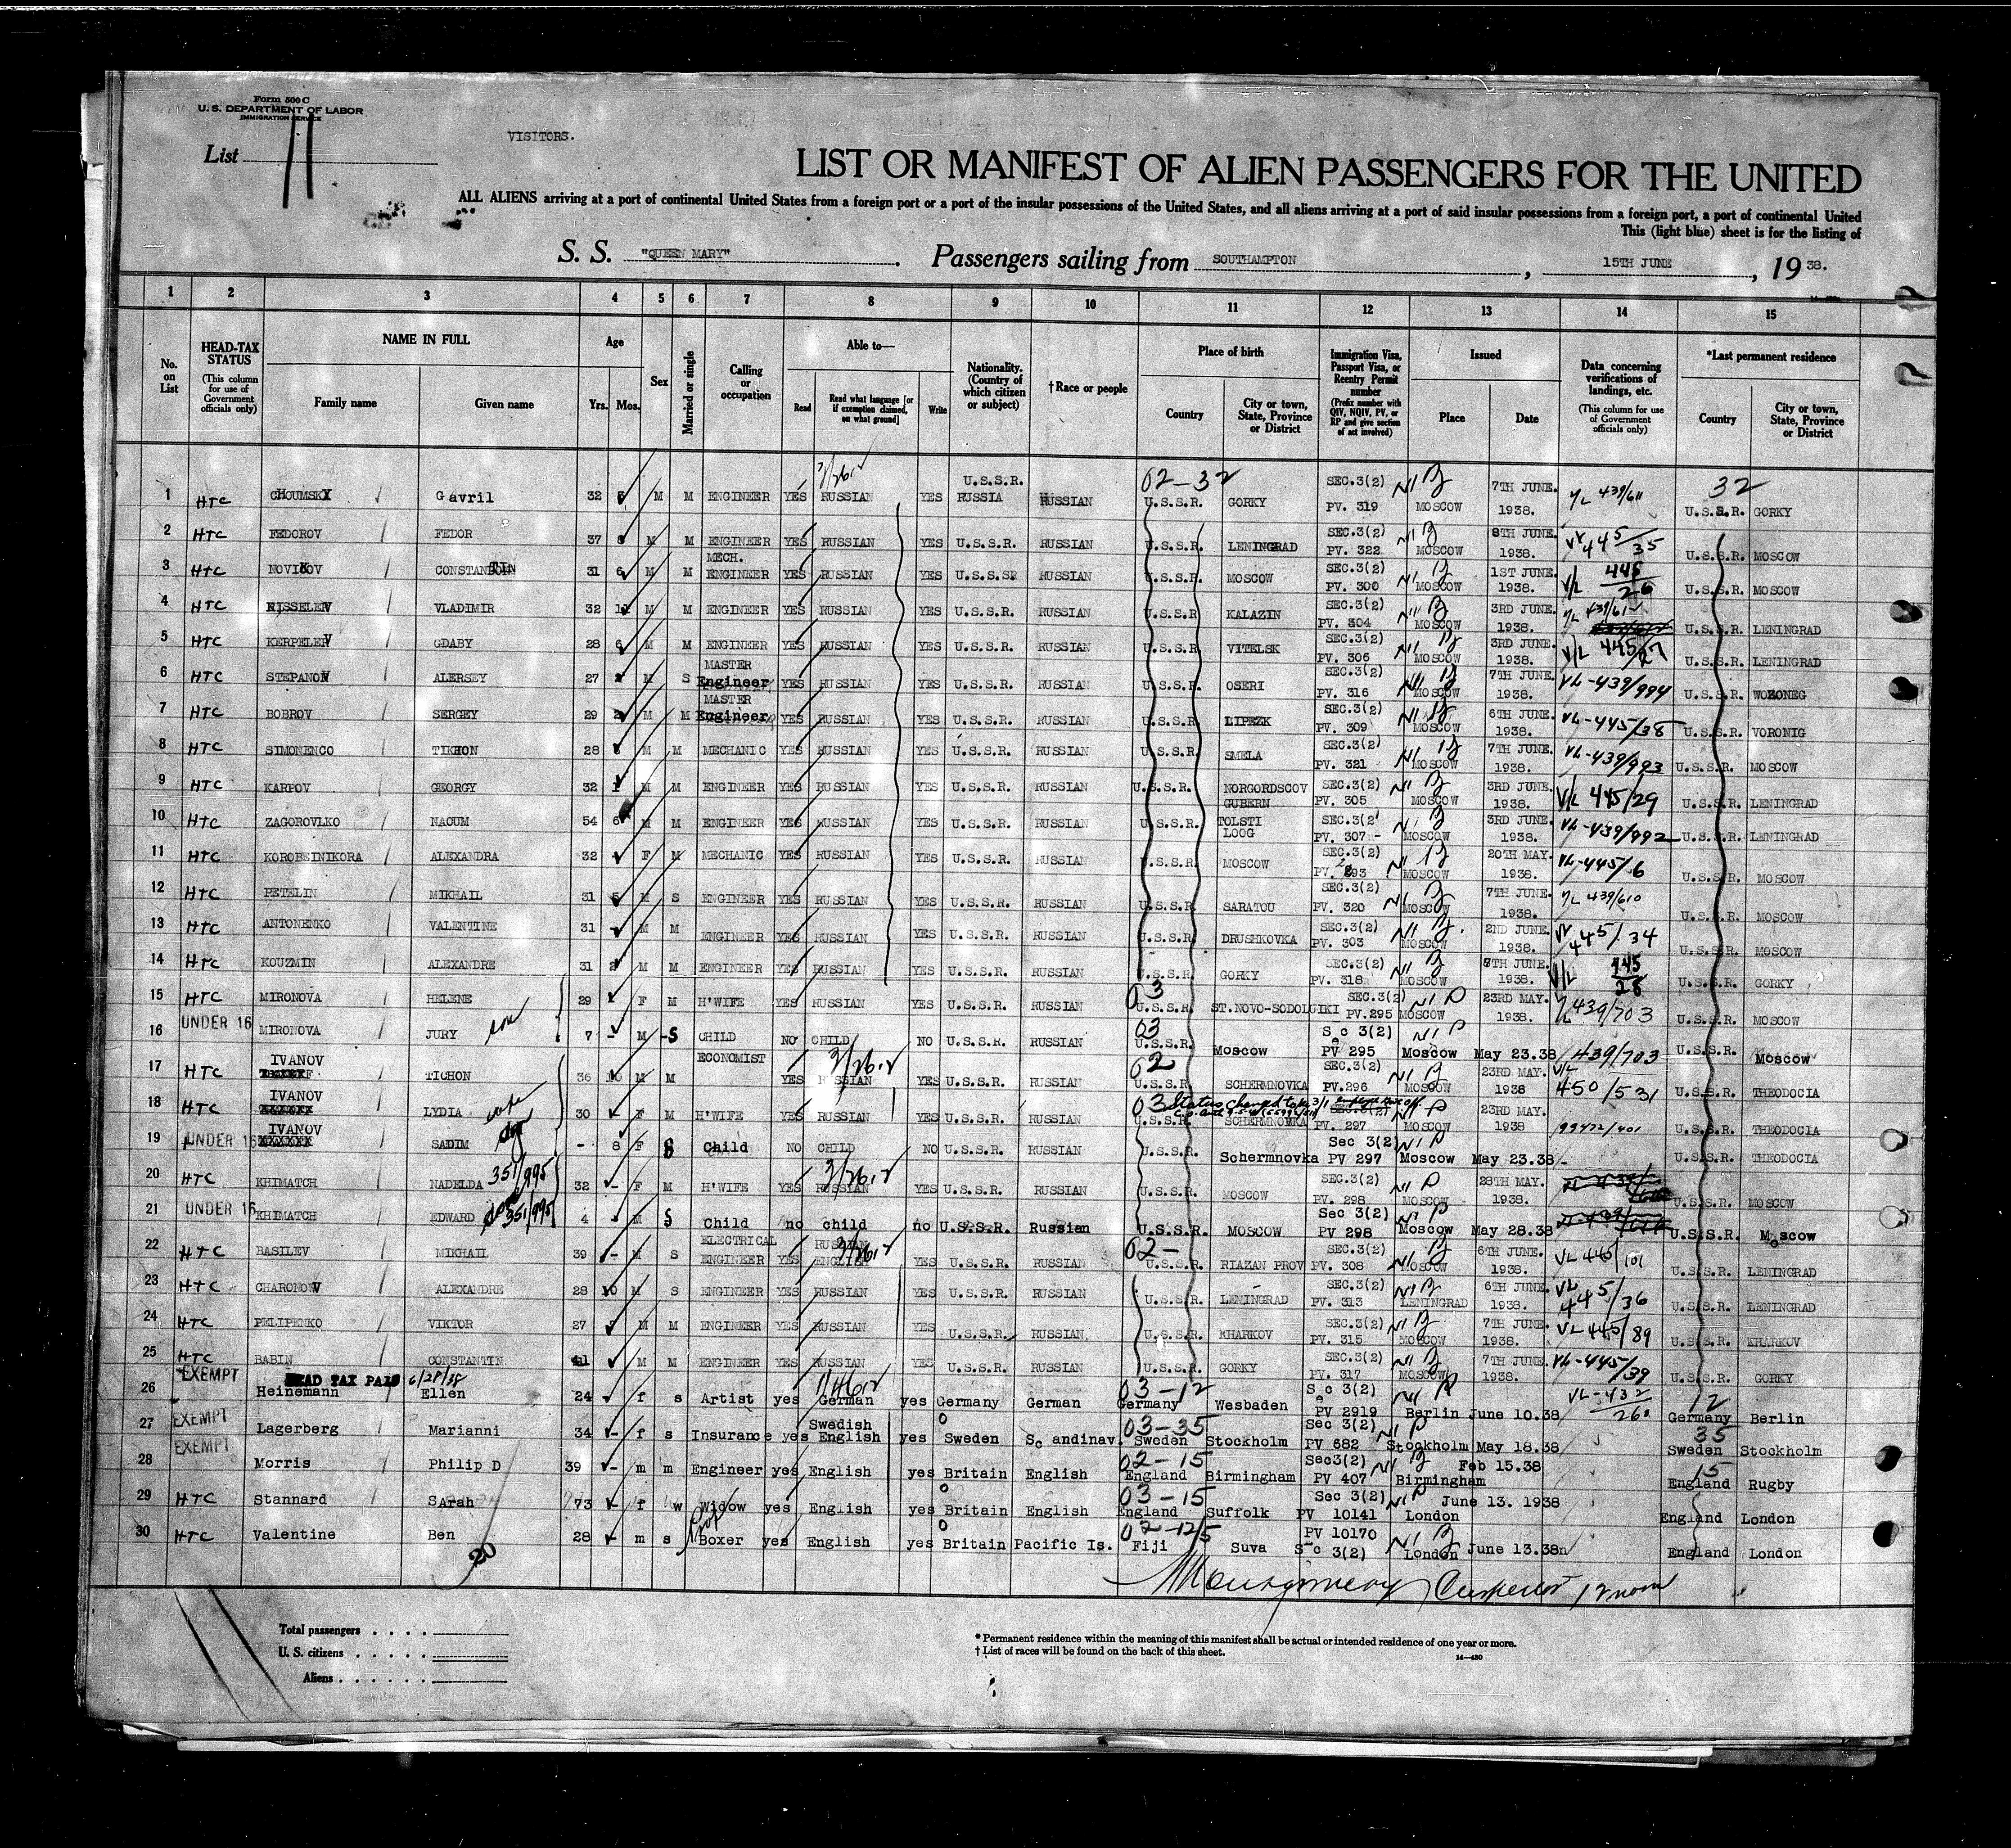 Form 500 C
U. S. DEPARTMENT OF LABOR
IMMIGRATION SERVICE
List 11
VISITORS.
LIST OR MANIFEST OF ALIEN PASSENGERS FOR THE UNITED
ALL ALIENS arriving at a port of continental United States from a foreign port or a port of the insular possessions of the United States, and all aliens arriving at a port of said insular possessions from a foreign port, a port of continental United
This (light blue) sheet is for the listing of
S. S. "QUEEN MARY". Passengers sailing from SOUTHAMPTON, 15TH JUNE, 1938.
1 2 3 4 5 6 7 8 9 10 11 12 13 14 15
No. on List
HEAD-TAX STATUS (This column for use of Government officials only)
NAME IN FULL Family name Given name
Age Yrs. Mos.
Sex
Married or single
Calling or occupation
Able to— Read Read what language [or if exemption claimed, on what ground] Write
Nationality. (Country of which citizen or subject)
†Race or people
Place of birth Country City or town, State, Province or District
Immigration Visa, Passport Visa, or Reentry Permit number (Prefix number with QIV, NQIV, PV, or RP and give section of act involved)
Issued Place Date
Data concerning verifications of landings, etc. (This column for use of Government officials only)
*Last permanent residence Country City or town, State, Province or District
1 HTC CHOUMSKY Gavril 32 M M ENGINEER YES RUSSIAN YES U.S.S.R. RUSSIA RUSSIAN 02-32 U.S.S.R. GORKY SEC.3(2) PV. 319 MOSCOW 7TH JUNE. 1938. 439/611 32 U.S.S.R. GORKY
2 HTC FEDOROV FEDOR 37 M M ENGINEER YES RUSSIAN YES U.S.S.R. RUSSIAN U.S.S.R. LENINGRAD SEC.3(2) PV. 322 MOSCOW 8TH JUNE. 1938. 445/35 U.S.S.R. MOSCOW
3 HTC NOVIKOV CONSTANTIN 31 6 M M MECH. ENGINEER YES RUSSIAN YES RUSSIAN U.S.S.R. MOSCOW SEC.3(2) PV. 300 MOSCOW 1ST JUNE. 1938. V/L 445/26 U.S.S.R. MOSCOW
4 HTC KISSELEV VLADIMIR 32 11 M M ENGINEER YES RUSSIAN YES U.S.S.R. RUSSIAN U.S.S.R KALAZIN SEC.3(2) PV. 304 MOSCOW 3RD JUNE. 1938. U.S.S.R. LENINGRAD
5 HTC KERPELEV GDABY 28 6 M M ENGINEER YES RUSSIAN YES U.S.S.R. RUSSIAN U.S.S.R. VITELSK SEC.3(2) PV. 306 MOSCOW 3RD JUNE. 1938. V/L 445/27 U.S.S.R. LENINGRAD
6 HTC STEPANOV ALERSEY 27 M S MASTER Engineer YES RUSSIAN YES U.S.S.R. RUSSIAN U.S.S.R. OSERI SEC.3(2) PV. 316 MOSCOW 7TH JUNE. 1938. VL-439/994 U.S.S.R. WORONEG
7 HTC BOBROV SERGEY 29 M M MASTER Engineer YES RUSSIAN YES U.S.S.R. RUSSIAN U.S.S.R LIPEZK SEC.3(2) PV. 309 MOSCOW 6TH JUNE. 1938. VL-445/38 U.S.S.R. VORONIG
8 HTC SIMONENCO TIKHON 28 M M MECHANIC YES RUSSIAN YES U.S.S.R. RUSSIAN U.S.S.R SMELA SEC.3(2) PV. 321 MOSCOW 7TH JUNE. 1938. VL-439/993 U.S.S.R. MOSCOW
9 HTC KARPOV GEORGY 32 M M ENGINEER YES RUSSIAN YES U.S.S.R. RUSSIAN U.S.S.R. NORGORDSCOV GUBERN SEC.3(2) PV. 305 MOSCOW 3RD JUNE. 1938. V/L 445/29 U.S.S.R. LENINGRAD
10 HTC ZAGOROVLKO NAOUM 54 6 M M ENGINEER YES RUSSIAN YES U.S.S.R. RUSSIAN U.S.S.R. TOLSTI LOOG SEC.3(2' PV. 307 MOSCOW 3RD JUNE. 1938. VL-439/992 U.S.S.R. LENINGRAD
11 HTC KOROBEINIKORA ALEXANDRA 32 F M MECHANIC YES RUSSIAN YES U.S.S.R. RUSSIAN U.S.S.R. MOSCOW SEC.3(2) PV. 293 MOSCOW 20TH MAY. 1938. VL-445/6 U.S.S.R. MOSCOW
12 HTC PETELIN MIKHAIL 31 5 M S ENGINEER YES RUSSIAN YES U.S.S.R. RUSSIAN U.S.S.R SARATOU SEC.3(2) PV. 320 MOSCOW 7TH JUNE. 1938. 439/610 U.S.S.R. MOSCOW
13 HTC ANTONENKO VALENTINE 31 - M M ENGINEER YES RUSSIAN YES U.S.S.R. RUSSIAN U.S.S.R DRUSHKOVKA SEC.3(2) PV. 303 MOSCOW 2ND JUNE. 1938. 445/34 U.S.S.R. MOSCOW
14 HTC KOUZMIN ALEXANDRE 31 2 M M ENGINEER YES RUSSIAN YES U.S.S.R. RUSSIAN U.S.S.R GORKY SEC.3(2) PV. 318 MOSCOW JUNE. 1938. V/L 445/28 U.S.S.R. GORKY
15 HTC MIRONOVA HELENE 29 F M H'WIFE YES RUSSIAN YES U.S.S.R. RUSSIAN 03 U.S.S.R. ST.NOVO-SODOLGIKI SEC.3(2) PV.295 MOSCOW 23RD MAY. 1938. 439/703 U.S.S.R. MOSCOW
16 UNDER 16 MIRONOVA JURY son 7 - M -S CHILD NO CHILD NO U.S.S.R. RUSSIAN 03 U.S.S.R. Moscow Sec 3(2) PV 295 Moscow May 23.38 439/703 U.S.S.R. Moscow
17 HTC IVANOV TICHON 36 10 M M ECONOMIST YES RUSSIAN YES U.S.S.R. RUSSIAN 02 U.S.S.R SCHERMNOVKA SEC.3(2) PV.296 MOSCOW 23RD MAY. 1938 V/L 450/531 U.S.S.R. THEODOCIA
18 HTC IVANOV LYDIA wife 30 - F M H'WIFE YES RUSSIAN YES U.S.S.R. RUSSIAN 03 Status changed to U.S.S.R. SCHERMNOVKA SEC.3(2) PV. 297 MOSCOW 23RD MAY. 1938 99472/401 U.S.S.R. THEODOCIA
19 UNDER 16 IVANOV SADIM - 8 F S Child NO CHILD NO U.S.S.R. RUSSIAN U.S.S.R. Schermnovka Sec 3(2) PV 297 Moscow May 23.38 U.S.S.R. THEODOCIA
20 HTC KHIMATCH NADELDA 351/995 32 - F M H'WIFE YES RUSSIAN YES U.S.S.R. RUSSIAN U.S.S.R. MOSCOW SEC.3(2) PV. 298 MOSCOW 28TH MAY. 1938. U.S.S.R. MOSCOW
21 UNDER 16 KHIMATCH EDWARD son 351/995 4 - M S Child no child no U.S.S.R. Russian U.S.S.R. MOSCOW Sec 3(2) PV 298 Moscow May 28.38 U.S.S.R. Moscow
22 HTC BASILEV MIKHAIL 39 - M S ELECTRICAL ENGINEER YES RUSSIAN ENGLISH YES U.S.S.R. RUSSIAN 02- U.S.S.R. RIAZAN PROV SEC.3(2) PV. 308 MOSCOW 6TH JUNE. 1938. VL 445/101 U.S.S.R. LENINGRAD
23 HTC CHARONOV ALEXANDRE 28 10 M S ENGINEER YES RUSSIAN YES U.S.S.R. RUSSIAN U.S.S.R. LENINGRAD SEC.3(2) PV. 313 LENINGRAD 6TH JUNE. 1938. VL 445/36 U.S.S.R. LENINGRAD
24 HTC PELIPENKO VIKTOR 27 M M ENGINEER YES RUSSIAN YES U.S.S.R. RUSSIAN U.S.S.R. KHARKOV SEC.3(2) PV. 315 MOSCOW 7TH JUNE. 1938. VL 445/89 U.S.S.R. KHARKOV
25 HTC BABIN CONSTANTIN 41 M M ENGINEER YES RUSSIAN YES U.S.S.R. RUSSIAN U.S.S.R. GORKY SEC.3(2) PV. 317 MOSCOW 7TH JUNE. 1938. VL-445/39 U.S.S.R. GORKY
26 EXEMPT HEAD TAX PAID 6/28/38 Heinemann Ellen 24 f s Artist yes German yes Germany German 03-12 Germany Wesbaden Sec 3(2) PV 2919 Berlin June 10.38 VL-432/260 12 Germany Berlin
27 EXEMPT Lagerberg Marianni 34 - f s Insurance yes Swedish English yes Sweden Scandinav. 03-35 Sweden Stockholm Sec 3(2) PV 682 Stockholm May 18.38 35 Sweden Stockholm
28 EXEMPT Morris Philip D 39 - m m Engineer yes English yes Britain English 02-15 England Birmingham Sec3(2) PV 407 Birmingham Feb 15.38 15 England Rugby
29 HTC Stannard SArah 73 - f w Widow yes English yes Britain English 03-15 England Suffolk Sec 3(2) PV 10141 London June 13. 1938 England London
30 HTC Valentine Ben 28 - m s Boxer yes English yes Britain Pacific Is. Fiji Suva PV 10170 Sec 3(2) London June 13.38 England London
20
Montgomery Inspector 12 noon
Total passengers
U. S. citizens
Aliens
* Permanent residence within the meaning of this manifest shall be actual or intended residence of one year or more.
† List of races will be found on the back of this sheet.
14—430